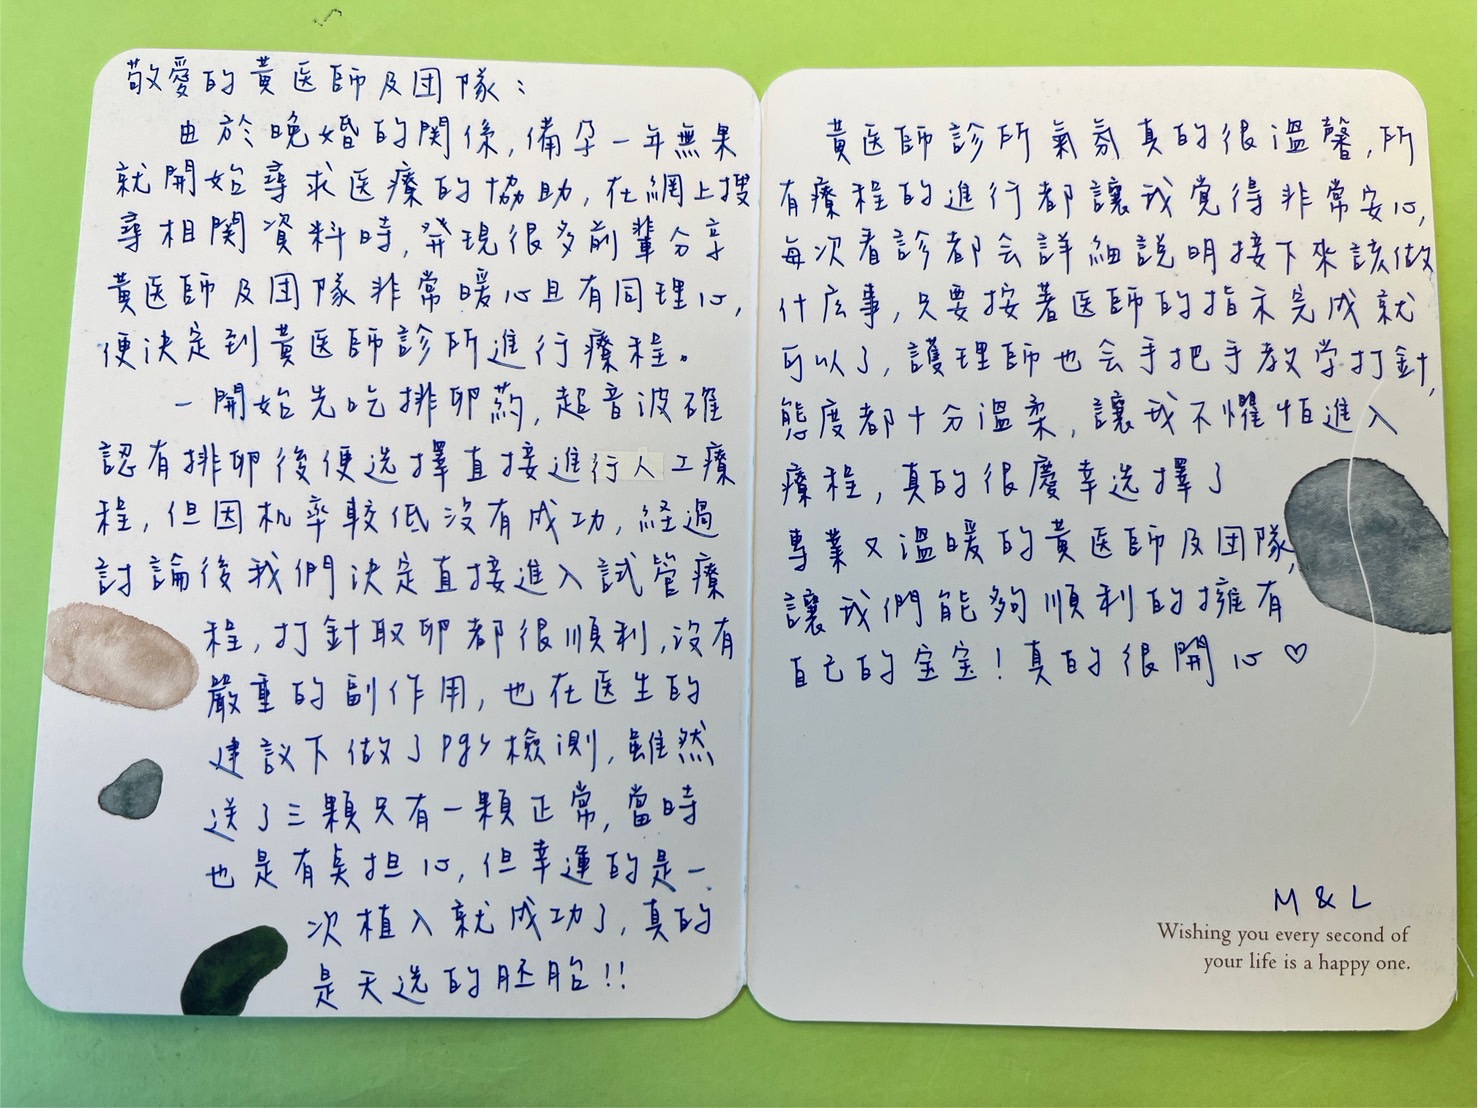 敬愛的黃医師及团隊：
由於晚婚的関係,備孕一年無果
就開始尋求医療的協助,在網上搜
尋相関資料時,発現很多前輩分享
黃医師及团隊非常暖心且有同理心,
便決定到黃医師診所進行療程。
一開始先吃排卵药,超音波確
認有排卵後便选擇直接進行人工療
程,但因机率較低沒有成功,経過
討論後我們決定直接進入試管療
程,打針取卵都很順利,沒有
嚴重的副作用,也在医生的
建议下做了pgs檢測,雖然
送了三顆只有一顆正常,當時
也是有点担心,但幸運的是一
次植入就成功了,真的
是天选的胚胎!!
黃医師診所氣氛真的很溫馨,所
有療程的進行都讓我覚得非常安心,
每次看診都会詳細説明接下來該做
什庅事,只要按著医師的指示完成就
可以了,護理師也会手把手教学打針,
態度都十分溫柔,讓我不懼怕進入
療程,真的很慶幸选擇了
專業又溫暖的黃医師及团隊,
讓我們能夠順利的擁有
自己的宝宝!真的很開心♡
M & L
Wishing you every second of
your life is a happy one.